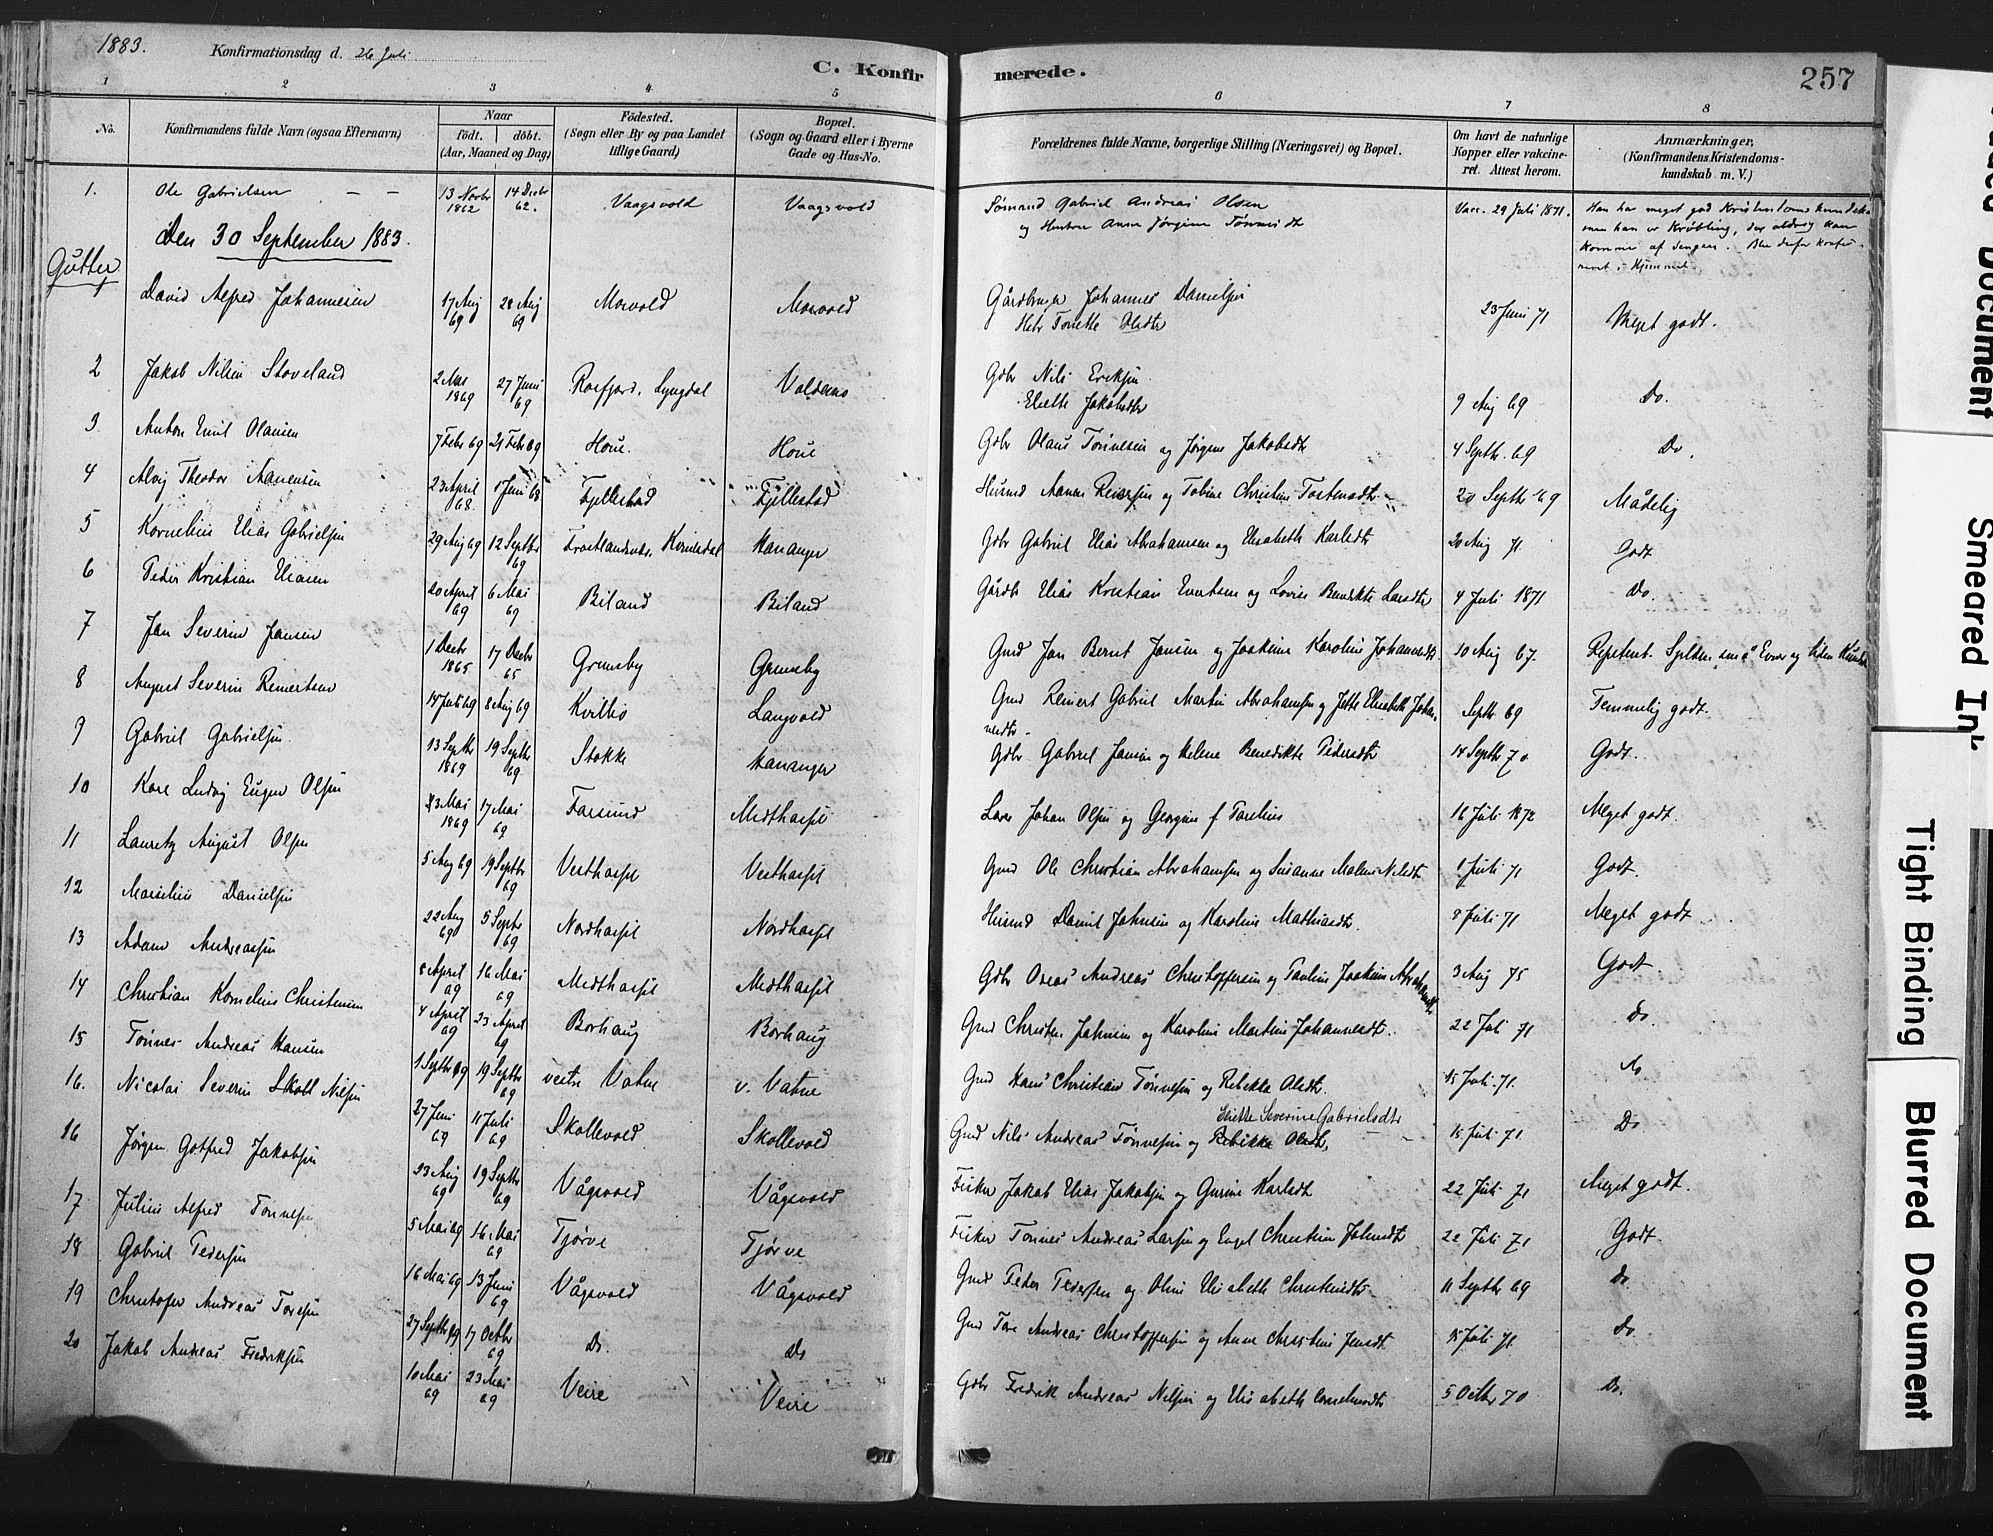 1883. Konfirmationsdag d. 26 Juli
C. Konfirmerede. 257
1 2 3 4 5 6 7 8
No. Konfirmandens fulde Navn (ogsaa Efternavn) Naar født. døbt. (Aar, Maaned og Dag) Fødested. (Sogn eller By og paa Landet tillige Gaard) Bopæl. (Sogn og Gaard eller i Byerne Gade og Hus-No. Forældrenes fulde Navne, borgerlige Stilling (Næringsvei) og Bopæl. Om havt de naturlige Kopper eller vakcineret. Attest herom. Anmærkninger, (Konfirmandens Kristendomskundskab m. V.)
1. Ole Gabrielsen 13 Novbr 1862 14 Decbr 62. Vaagsvold Vaagsvold Sømand Gabriel Andreas Olsen og Hustru Anne Jørgine Tønnesdt Vacc. 29 Juli 1871. Han har meget god Kristendomskundskab men han er Krøbling, der aldrig kan komme af Sengen. Blev derfor konfirmeret i Hjemmet.
Den 30 September 1883.
Gutter
1 David Alfred Johannesen 17 Aug 69 28 Aug 69 Mosvold Mosvold Gårdbruger Johannes Danielsen Hstr Tonette Olsdtr 23 Juni 71 Meget godt.
2 Jakob Nilsen Stoveland 2 Mai 1869 27 Juni 69 Rosfjord, Lyngdal Gdbr Nils Eriksen Jakobsdtr 9 Aug 69 Do.
3. Anton Emil Olausen 7 Febr 69 21 Febr 69 Houe. Houe Gdbr Olaus Tønnesen og Jørgine Jakobsdt 4 Septbr 69 Do.
4 Theodor Aanensen 23 April 68. 1 Juni 68 Fjellestad Fjellestad Husmd Aanen Reiersen og Tobine Christine Tostensdtr 20 Septbr 69 Mådelig
5 Kornelius Elias Gabrielsen 29 Aug 69 12 Septbr 69 Hananger Gdbr Gabriel Elias Abrahamsen og Elisabeth Karlsdtr 20 Aug 71 Godt
6 Peder Kristian Eliasen 20 April 69 6 Mai 69 Biland Biland Gårdbr Elias Kristian Evertsen og Lovise Benedikte Larsdtr 4 Juli 1871 Do.
7 Jan Severin Jansen 1 Decbr 1865 17 Decbr 65 Grimsby Grimsby Gmd Jan Bernt Jansen og Joakime Karoline Johannesdtr 10 Aug 67. Repetent. små Evner og liden Kundsk
8 August Severin Reinertsen 14 Juli 69 8 Aug 69 Kvilbo Langvold Gmd Reinert Gabriel Martin Abrahamsen og Jette Elisabeth Johannesdtr. Septbr 69 Temmelig godt.
9 Gabriel Gabrielsen. 13 Septbr 1869 19 Septbr 69 Stokke Hananger Gdbr Gabriel Jansen og Helene Benedikte Pedersdtr 14 Septbr 70 Godt.
10 Karl Ludvig Eugen Olsen 3 Mai 1869 17 Mai 69 Farsund Midthassel Johan Olsen og Georgine f. 16 Juli 1872 Meget godt.
11 Lauritz August Olsen 5 Aug 69 19 Septbr 69 Vesthassel Vesthassel Gmd Ole Christian Abrahamsen og Susanne Malene Nilsdt 1 Juli 71 Godt.
12 Marselius Danielsen 22 Aug 69 5 Septbr 69 Nordhassel Nordhassel Husmd Daniel Johnsen og Karoline Mathiasdtr. 8 Juli 71 Meget godt
13 Adam Andreassen 8 April 69 16 Mai 69 Midthassel Midthassel Gdbr Andreas Christoffersen og Pauline Joakime Abrahamsdtr 3 Aug 75 Godt
14 Christian Kornelius Christensen 4 April 69 23 April 69 Borhaug Borhaug Gmd Christen Johnsen og Karoline Martine Johannesdt. 22 Juli 71 Do.
15 Tønnes Andreas Hansen 1 Septbr 69 19 Septbr 69 vestre Vatne v. Vatne Gmd Hans Christian Tønnesen og Rebekka Olsdtr. 15 Juli 71. Do
16. Nicolai Severin Nilsen 27 Juni 69 11 Juli 69 Skollevold Skollevold Gmd Nils Andreas Tønnesen og Rebekka Olsdtr, Severine Gabrielsdtr 15 Juli 71 Do
16 Jørgen Gotfred Jakobsen 23 Aug 69 19 Septbr 69 Vågsvold Vågsvold Fisker Jakob Elias Jakobsen og Gurine Karlsdt 22 Juli 71 Meget godt.
17 Julius Alfred Tønnesen 5 Mai 69 16 Mai 69 Tjørve Tjørve Fisker Tønnes Andreas Larsen og Engel Christine Johnsdtr 22 Juli 71 Godt.
18 Gabriel Pedersen 16 Mai 69 13 Juni 69 Vågsvold Vågsvold Gmd Peder Pedersen og Oline Elisabeth Christensdtr 11 Septbr 69 Do.
19 Christoffer Andreas Toresen 27 Septbr 69 17 Octbr 69 Do. Do Gmd Tore Andreas Christoffersen og Anne Christine Jensdt 15 Juli 71. Do.
20 Jakob Andreas Fredriksen 10 Mai 69 23 Mai 69 Veire Veire Gdbr Fredrik Andreas Nilsen og Elisabeth Corneliusdtr 5 Octbr 70 Do.
Smeared Ink
Tight Binding
Blurred Document